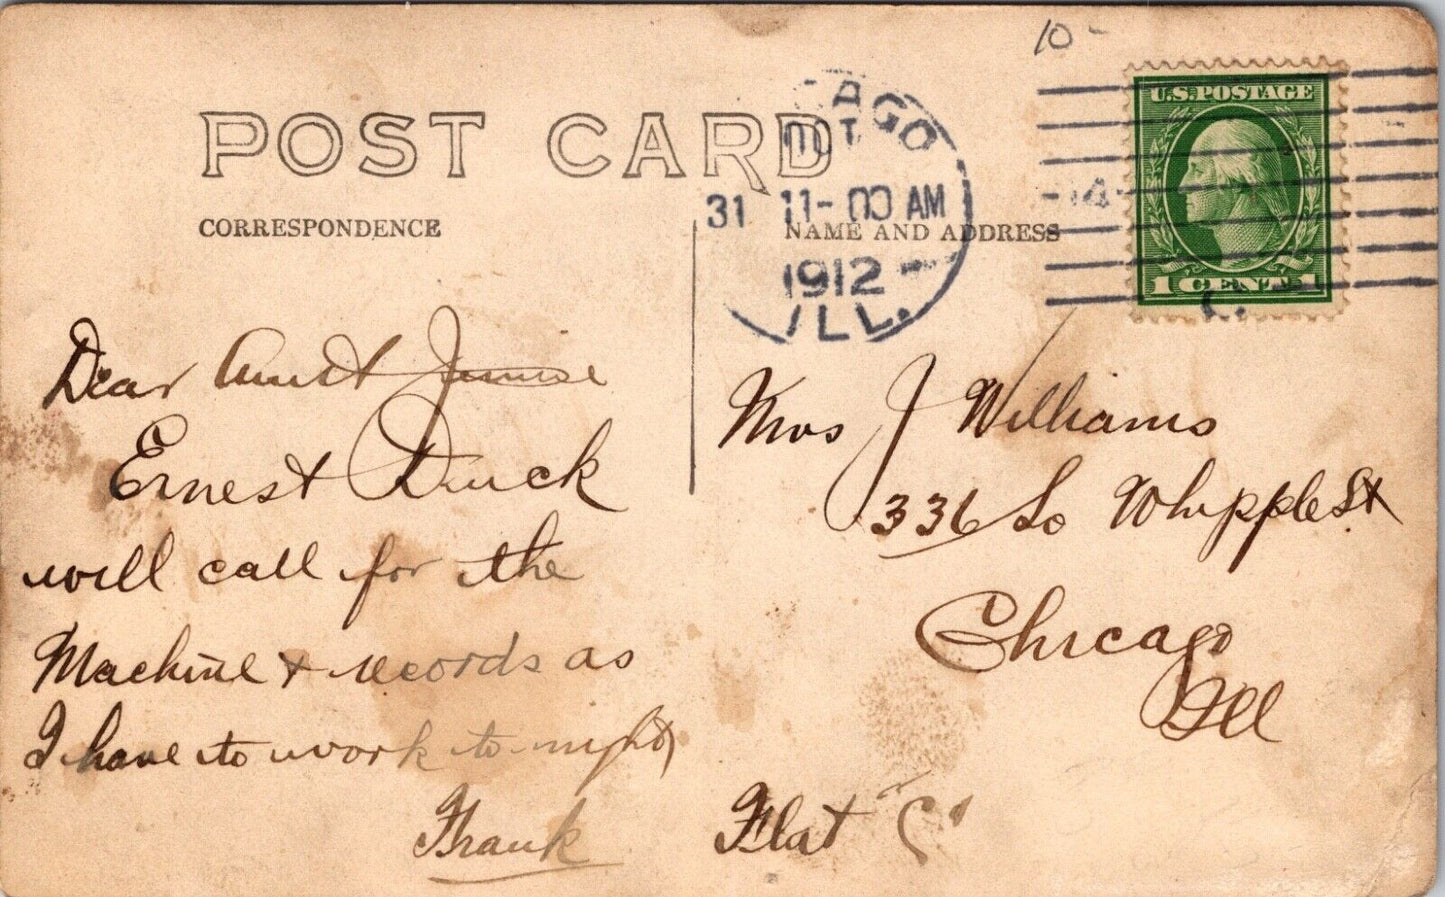 10-
POST CARD
CORRESPONDENCE
NAME AND ADDRESS
AGO
OCT
31 11-00 AM
1912
ILL.
14
U.S. POSTAGE
1 CENT 1
Dear Aunt Jennie
Ernest Duck
will call for the
Machine + records as
I have to work to-night
Frank
Mrs J Williams
336 So Whipple St
Chicago
Ill
Flat "C"